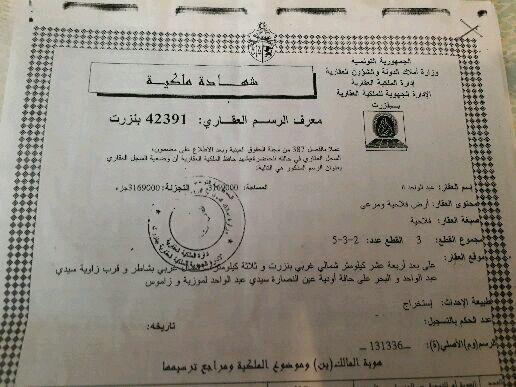 الجمهورية التونسية
وزارة أملاك الدولة والشؤون العقارية
إدارة الملكية العقارية
الإدارة الجهوية للملكية العقارية
ببنزرت
شهادة ملكية
معرف الرسم العقاري: 42391 بنزرت
عملا بالفصل 387 من مجلة الحقوق العينية وبعد الاطلاع على مضمون
السجل العقاري في حالته الحاضرة يشهد حافظ الملكية العقارية أن وضعية السجل العقاري
بعنوان الرسم المذكور هي التالية:
إسم العقار: عبد الواحد
المساحة: 3169000 التجزئة: 3169000 جزء
محتوى العقار: أرض فلاحية ومرعى
صبغة العقار: فلاحية
مجموع القطع: 3 القطع عدد: 2-3-5
موقع العقار:
على بعد أربعة عشر كيلومتر شمالي غربي بنزرت و ثلاثة كيلومتر غربي بشاطر و قرب زاوية سيدي
عبد الواحد و البحر على حافة أودية عين النصارة سيدي عبد الواحد لموزية و زاموس
طبيعة الإحداث: إستخراج
عدد الحكم بالتسجيل: تاريخه:
الرسم(وم) الأصلي(ة): 131336
هوية المالك(ين) وموضوع الملكية ومراجع ترسيمها